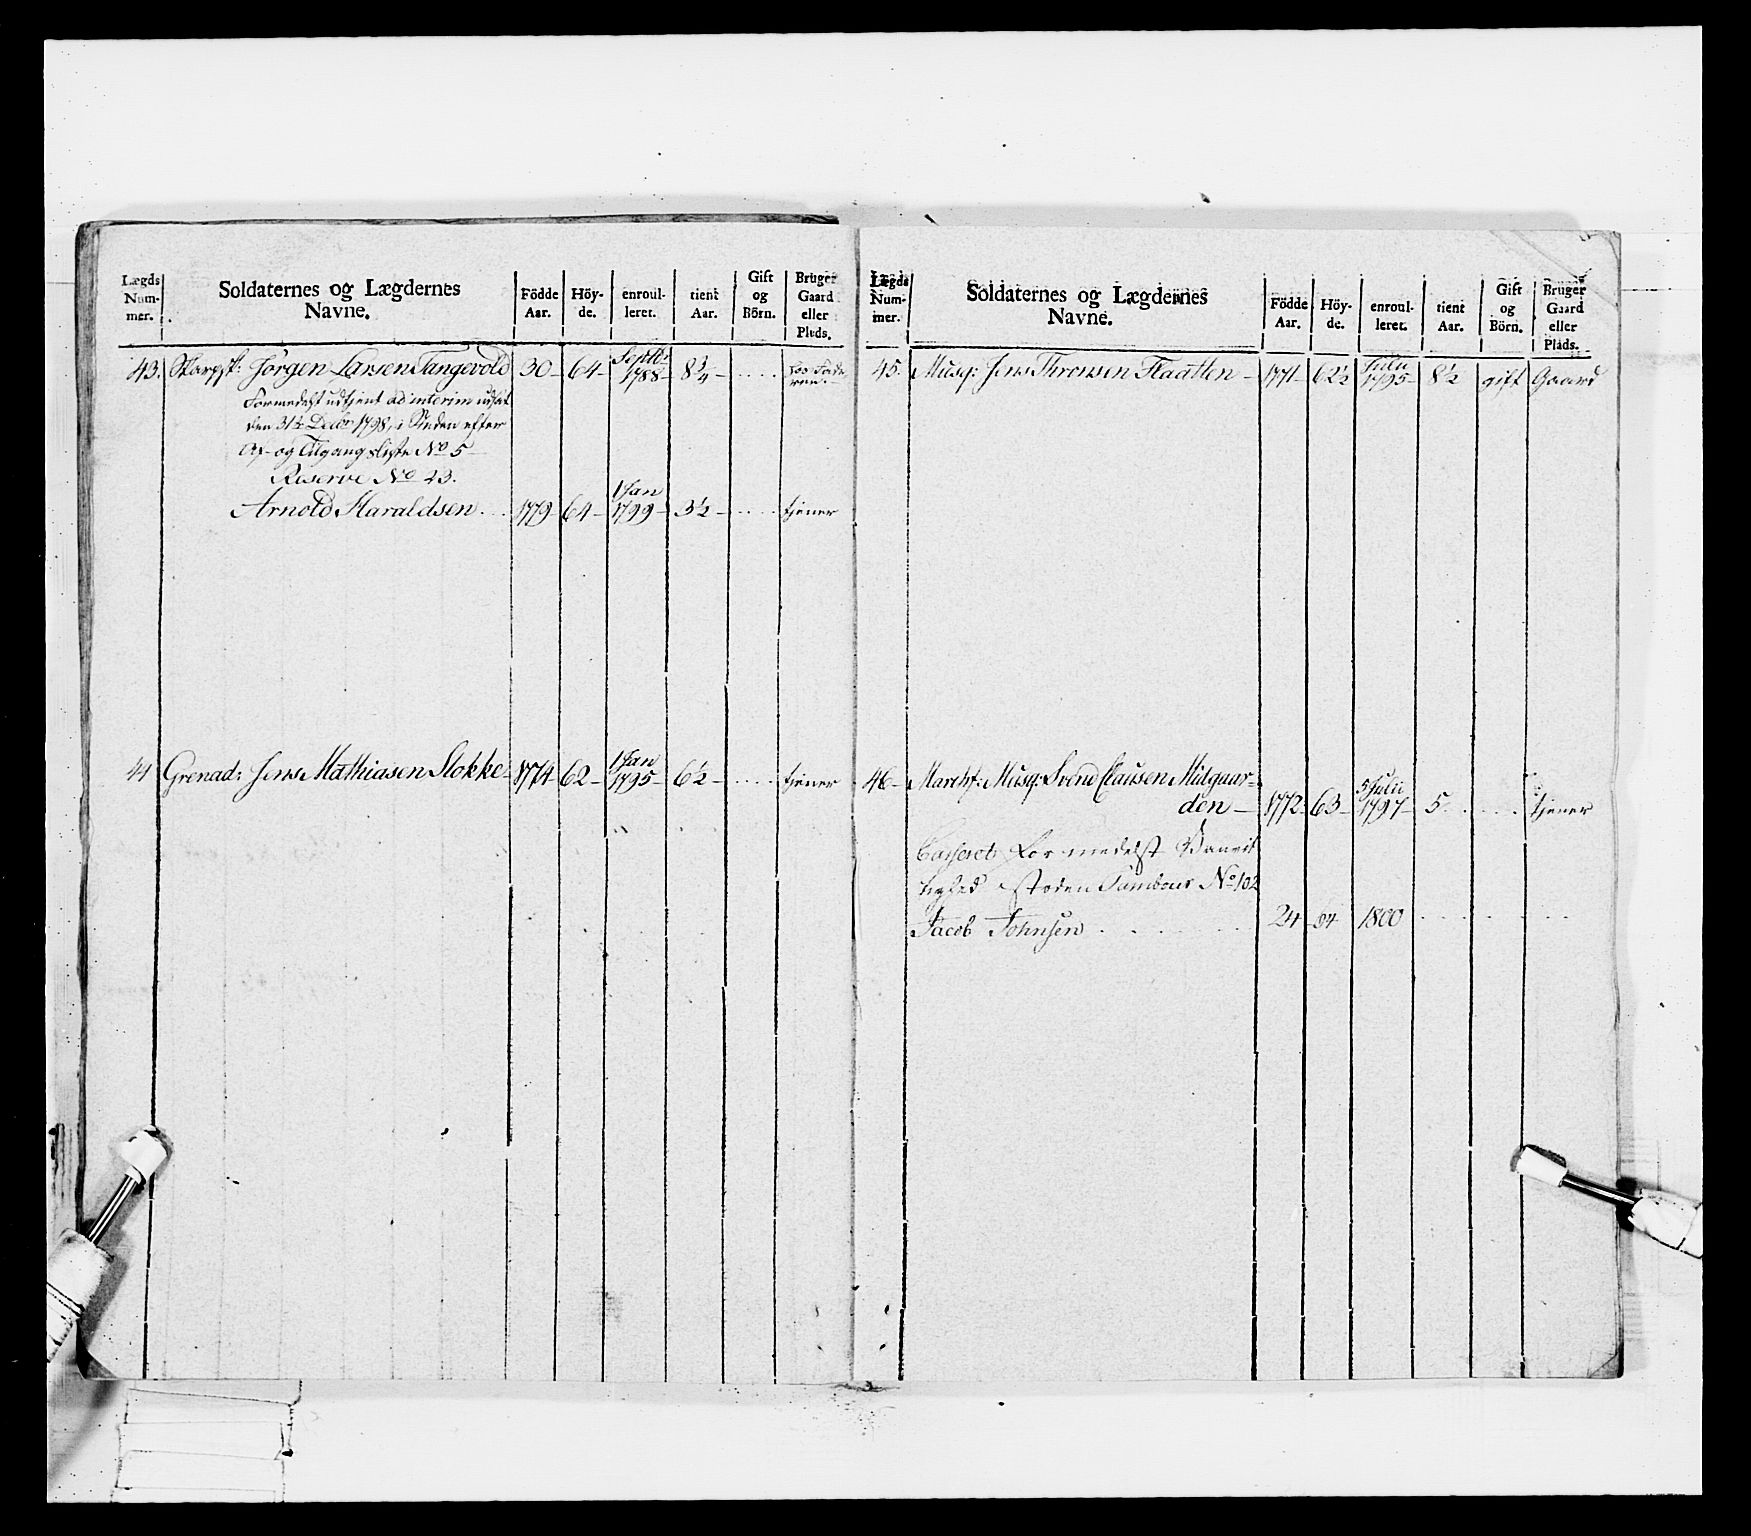 Lægds Num- mer. Soldaternes og Lægdernes Navne. Födde Aar. Höy- de. enroul- leret. tient Aar. Gift og Börn. Bruger Gaard eller Plads.
43. Skarpsk: Jørgen Larsen Tangevold 30 – 64 – Septbr 1788 – 8 3/4 – .... hos Fade- ren.
Formedelst udtient ad interim udsat
den 31te Decbr 1798, i Steden efter
Af- og Tilgangsliste No 5
Reserve No 23.
Arnold Haraldsen 1779 – 64 – 1 Jan 1799 – 3 1/2 – .... tjener
44 Grenad: Jens Mathiasen Slokke – 1774 – 62 – 1 Jan 1795 – 6 1/2 – .... tjener
Lægds Num- mer. Soldaternes og Lægdernes Navne. Födde Aar. Höy- de. enroul- leret. tient Aar. Gift og Börn. Bruger Gaard eller Plads.
45. Musq: Jens Thronsen Flaatten – 1771 – 62 1/2 Julii 1795 – 8 1/2 gift Gaard
46 – Marchf: Musq: Svend Clausen Midgaar=
den – 1772 – 63 – 5 Julii 1797 – 5 .... tjener
Casseret formedelst Vanvit
tighed Tambour No 102
Jacob Johnsen 24 1800